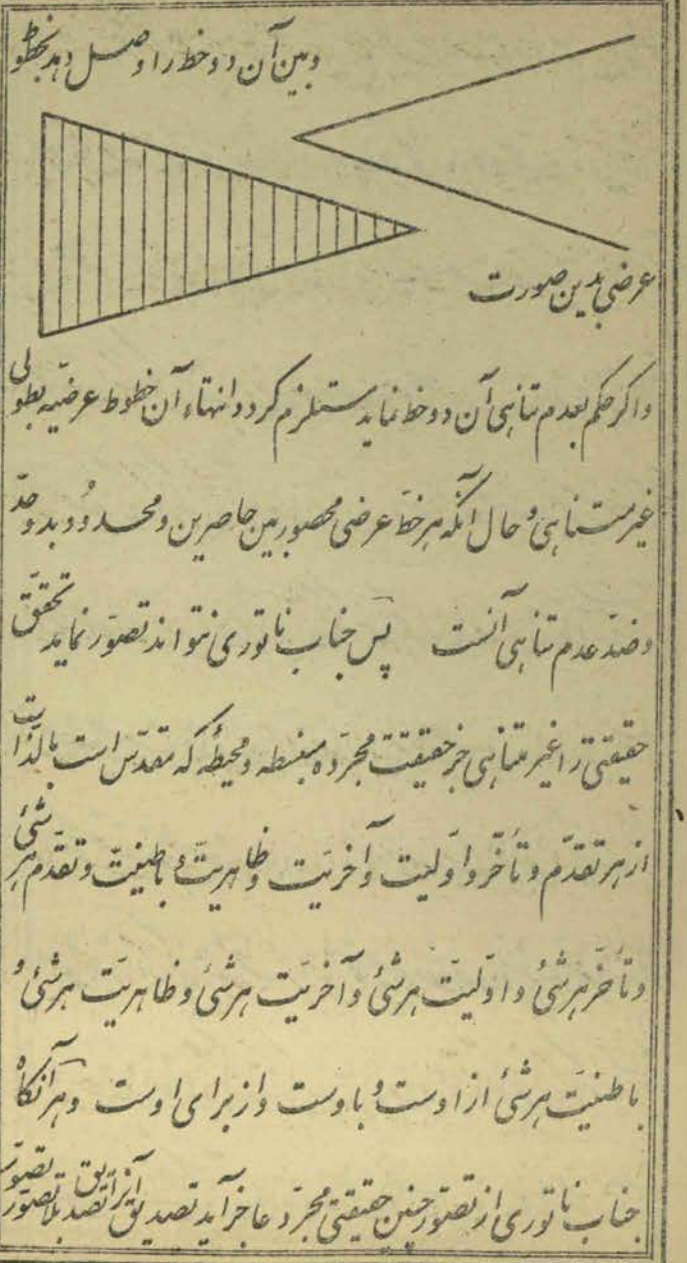 وبین آن دو خط را وصل دهد بخطوط
عرضی بدین صورت
واکر حکم بعدم تناهی آن دو خط نماید مستلزم کردد انتهاء آن خطوط عرضیّه بطولی
غیر متناهی و حال آنکه هر خطّ عرضی محصور بین حاصرین ومحدود بدو حدّ
وضدّ عدم تناهی آنست پس جناب ناتوری نتواند تصوّر نماید تحقّق
حقیقتی را غیر متناهی جز حقیقت مجرّدهٔ منبسطه ومحیطه که مقدّس است بالذّات
از هر تقدّم وتأخّر واوّلیت وآخریّت وظاهریّت و باطنیّت وتقدّم هر شیئ
وتأخّر هر شیئ واوّلیّت هر شیئ وآخریّت هر شیئ وظاهریّت هر شیئ و
باطنیّت هر شیئ از اوست و باوست واز برای اوست وهر آنکاه
جناب ناتوری از تصوّر چنین حقیقتی مجرّد عاجز آید تصدیق آنرا تصدیق بلا تصوّر